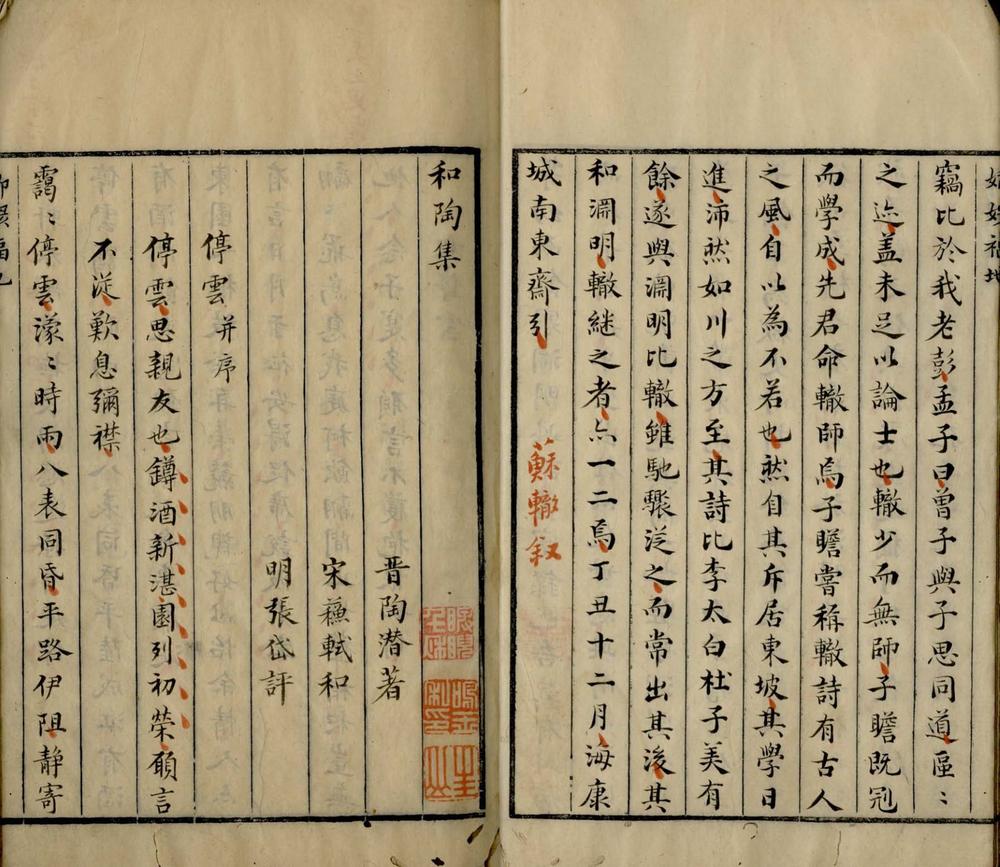 嫏嬛福地
竊比於我老彭孟子曰曾子與子思同道區〻
之迹盖未足以論士也轍少而無師子瞻既冠
而學成先君命轍師焉子瞻嘗稱轍詩有古人
之風自以為不若也然自其斥居東坡其學日
進沛然如川之方至其詩比李太白杜子美有
餘遂與淵明比轍雖馳驟從之而常出其後其
和淵明轍継之者亦一二焉丁丑十二月海康
城南東齋引
蘇轍叙
和陶集
晋陶潜著
宋蘓軾和
明張岱評
停雲并序
停雲思親友也罇酒新湛園列初榮願言
不從歎息彌襟
靄〻停雲濛〻時雨八表同昏平路伊阻静寄